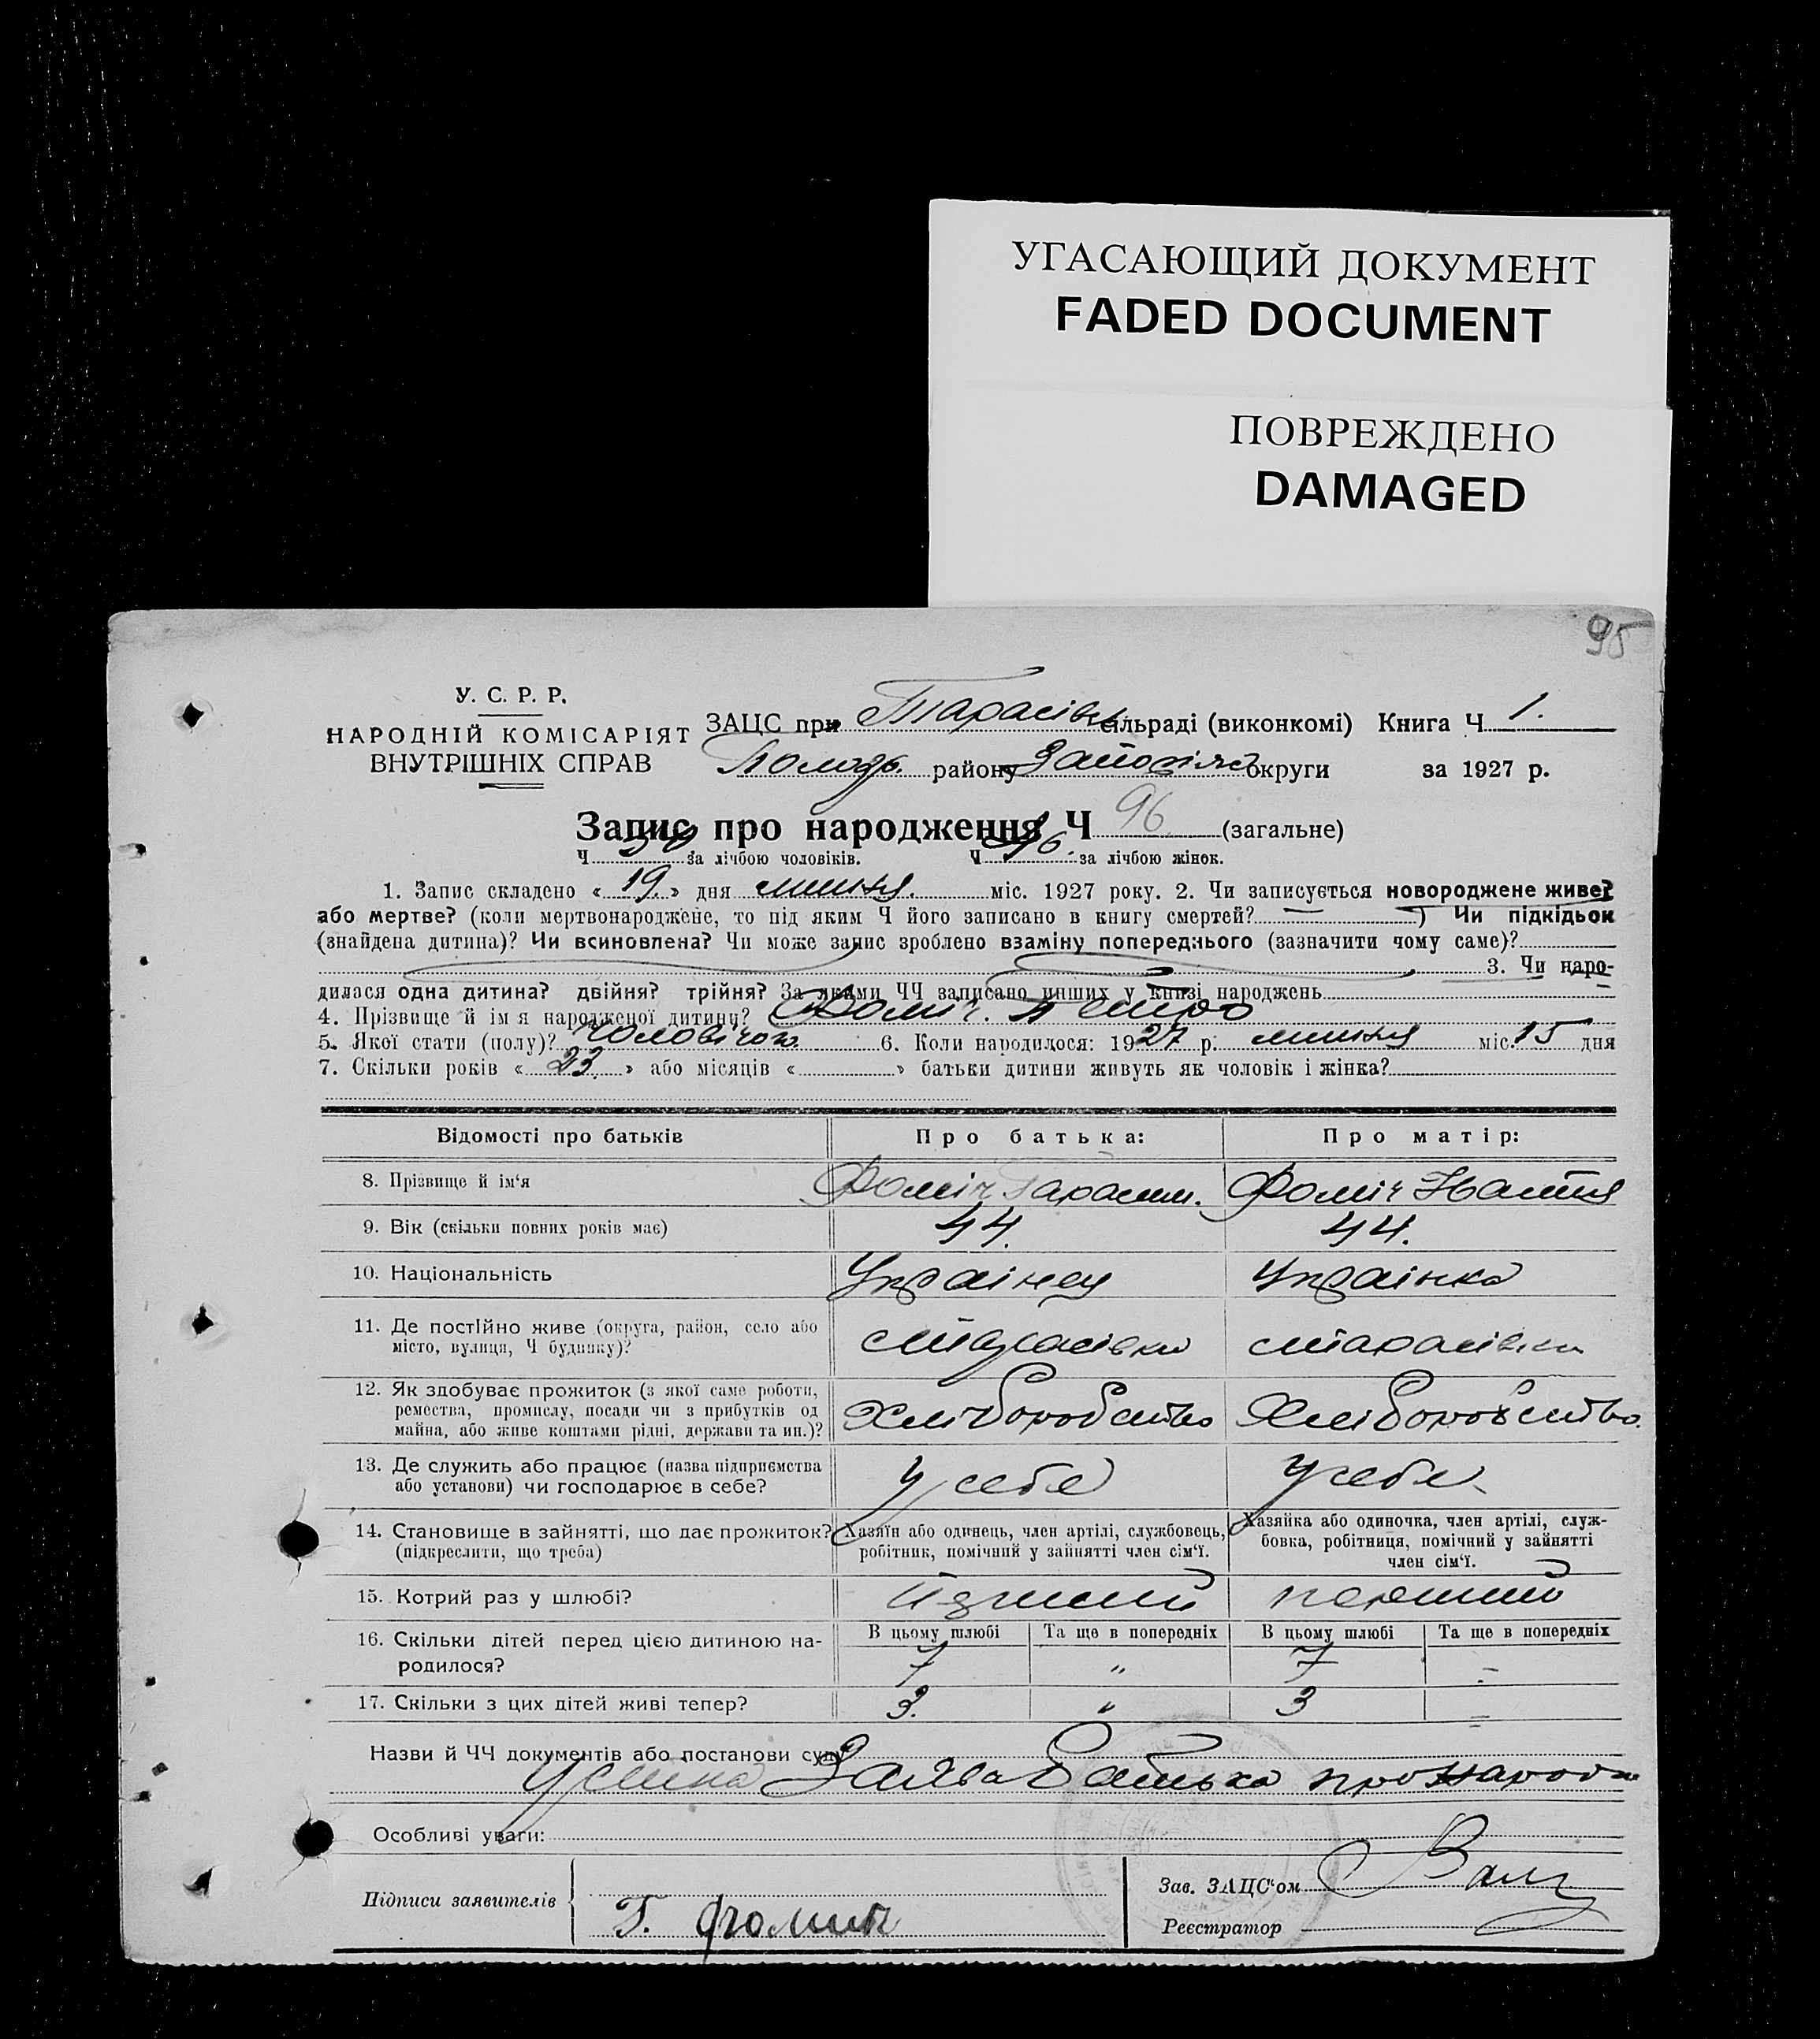 УГАСАЮЩИЙ ДОКУМЕНТ
FADED DOCUMENT
ПОВРЕЖДЕНО
DAMAGED
95
У. С. Р. Р.
НАРОДНІЙ КОМІСАРІЯТ
ВНУТРІШНІХ СПРАВ
ЗАЦС при Тарасівк. сільраді (виконкомі) Книга Ч 1.
району округи за 1927 р.
Запис про народження Ч 96 (загальне)
Ч за лічбою чоловіків. Ч за лічбою жінок.
1. Запис складено « 19 » дня липня міс. 1927 року. 2. Чи записується новороджене живе?
або мертве? (коли мертвонароджене, то під яким Ч його записано в книгу смертей? — ) Чи підкідьок
(знайдена дитина)? Чи всиновлена? Чи може запис зроблено взаміну попереднього (зазначити чому саме)?
3. Чи наро-
дилася одна дитина? двійня? трійня? За якими ЧЧ записано инших у книзі народжень
4. Прізвище й ім я народженої дитини? Фоміч. Петро
5. Якої стати (полу)? Чоловічої. 6. Коли народилося: 1927 р. липня міс. 15 дня
7. Скільки років « 23 » або місяців « » батьки дитини живуть як чоловік і жінка?
Відомості про батьків Про батька: Про матір:
8. Прізвище й ім'я Фоміч Гарасим. Фоміч Настя
9. Вік (скільки повних років має) 44. 44.
10. Національність Українец Українка
11. Де постійно живе (округа, район, село або
місто, вулиця, Ч будинку)? с Тарасівка с Тарасівка
12. Як здобуває прожиток (з якої саме роботи,
ремества, промислу, посади чи з прибутків од
майна, або живе коштами рідні, держави та ин.)? Хліборобство Хліборобство
13. Де служить або працює (назва підприємства
або установи) чи господарює в себе? У себе У себе
14. Становище в зайнятті, що дає прожиток?
(підкреслити, що треба)
Хазяїн або одинець, член артілі, службовець,
робітник, помічний у зайнятті член сім'ї.
Хазяйка або одиночка, член артілі, служ-
бовка, робітниця, помічний у зайнятті
член сім'ї.
15. Котрий раз у шлюбі? перший
16. Скільки дітей перед цією дитиною на-
родилося?
В цьому шлюбі Та ще в попередніх В цьому шлюбі Та ще в попередніх
7 „ 7 –
17. Скільки з цих дітей живі тепер? 3. „ 3 –
Назви й ЧЧ документів або постанови суду
Усшна Заява Батька про народж
Особливі уваги:
Підписи заявителів
Г. Фомич
Зав. ЗАЦС'ом
Реєстратор